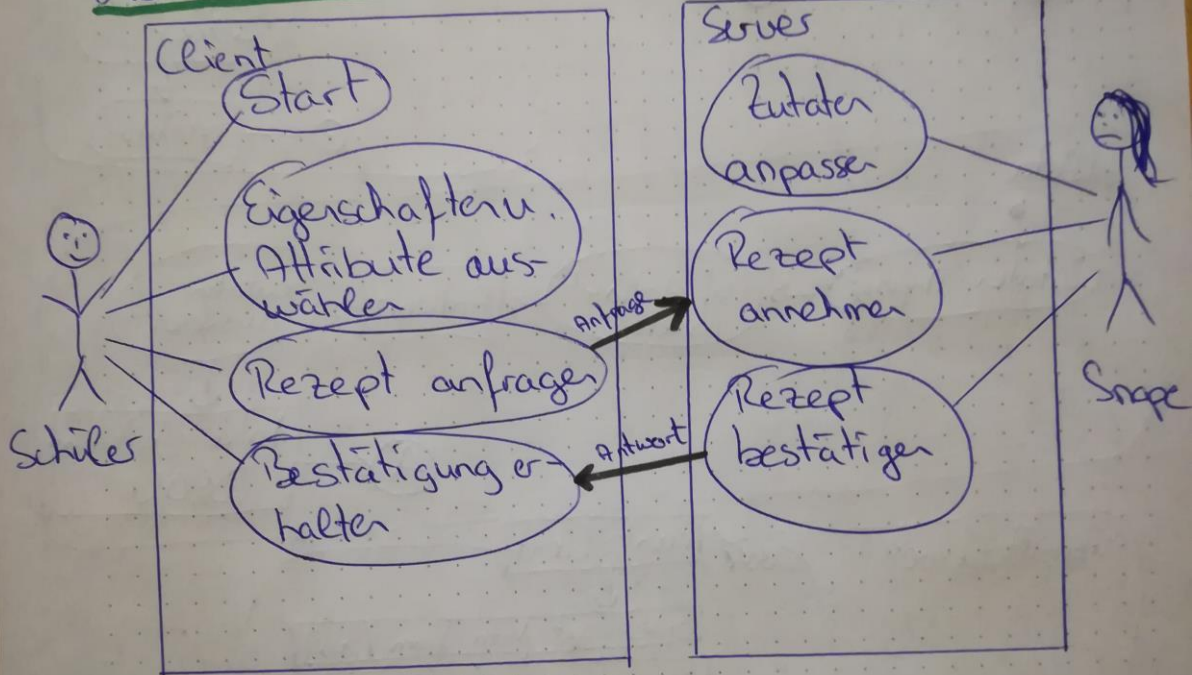 Client
Start
Eigenschaften u.
Attribute aus-
wählen
Rezept anfragen
Bestätigung er-
halten
Schüler
Anfrage
Antwort
Server
Zutaten
anpassen
Rezept
annehmen
Rezept
bestätigen
Snape